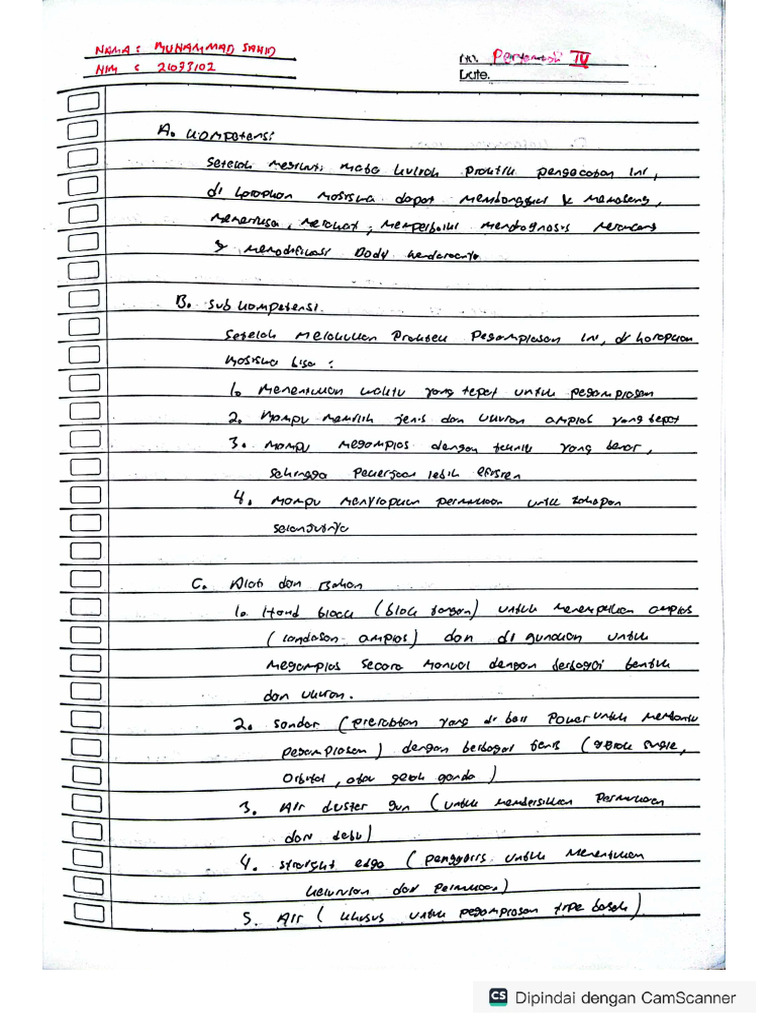 NAMA : MUHAMMAD SAHID
NIM : 21073102
No. Pertemuan IV
Date.
A. Kompetensi
Setelah megikuti mata kuliah praktik pengecatan ini,
di harapkan mosiswa dapat membongkar & memasang,
memeriksa, merawat, memperbaiki mendiagnosis merancang
& memodifikasi Body kendaraan
B. Sub kompetensi.
Setelah melakukan Praktek Pegamplasan ini, di harapkan
mosiswa bisa :
1. Menentukan waktu yang tepat untuk pegamplasan
2. Mampu memilih jenis dan ukuran amplas yang tepat
3. mampu megamplas dengan teknik yang benar,
sehingga Pekerjaan lebih efisien
4. Mampu menyiapkan permukaan untuk tahapan
selanjutnya
C. Alat dan Bahan
1. Hand block (blok tangan) untuk menempelkan amplas
(landasan amplas) dan di gunakan untuk
Megamplas secara manual dengan berbagai bentuk
dan ukuran.
2. Sandar (prerabtan yang di beri Power untuk membantu
pegamplasan) dengan berbagai jenis (gerak single,
Orbital, atau gerak ganda)
3. Air duster gun (untuk membersihkan Permukaan
dari debu)
4. straight edge (penggaris untuk menentukan
kelurusan dari Permukaan)
5. Air (khusus untuk pegamplasan tipe basah)
CS Dipindai dengan CamScanner